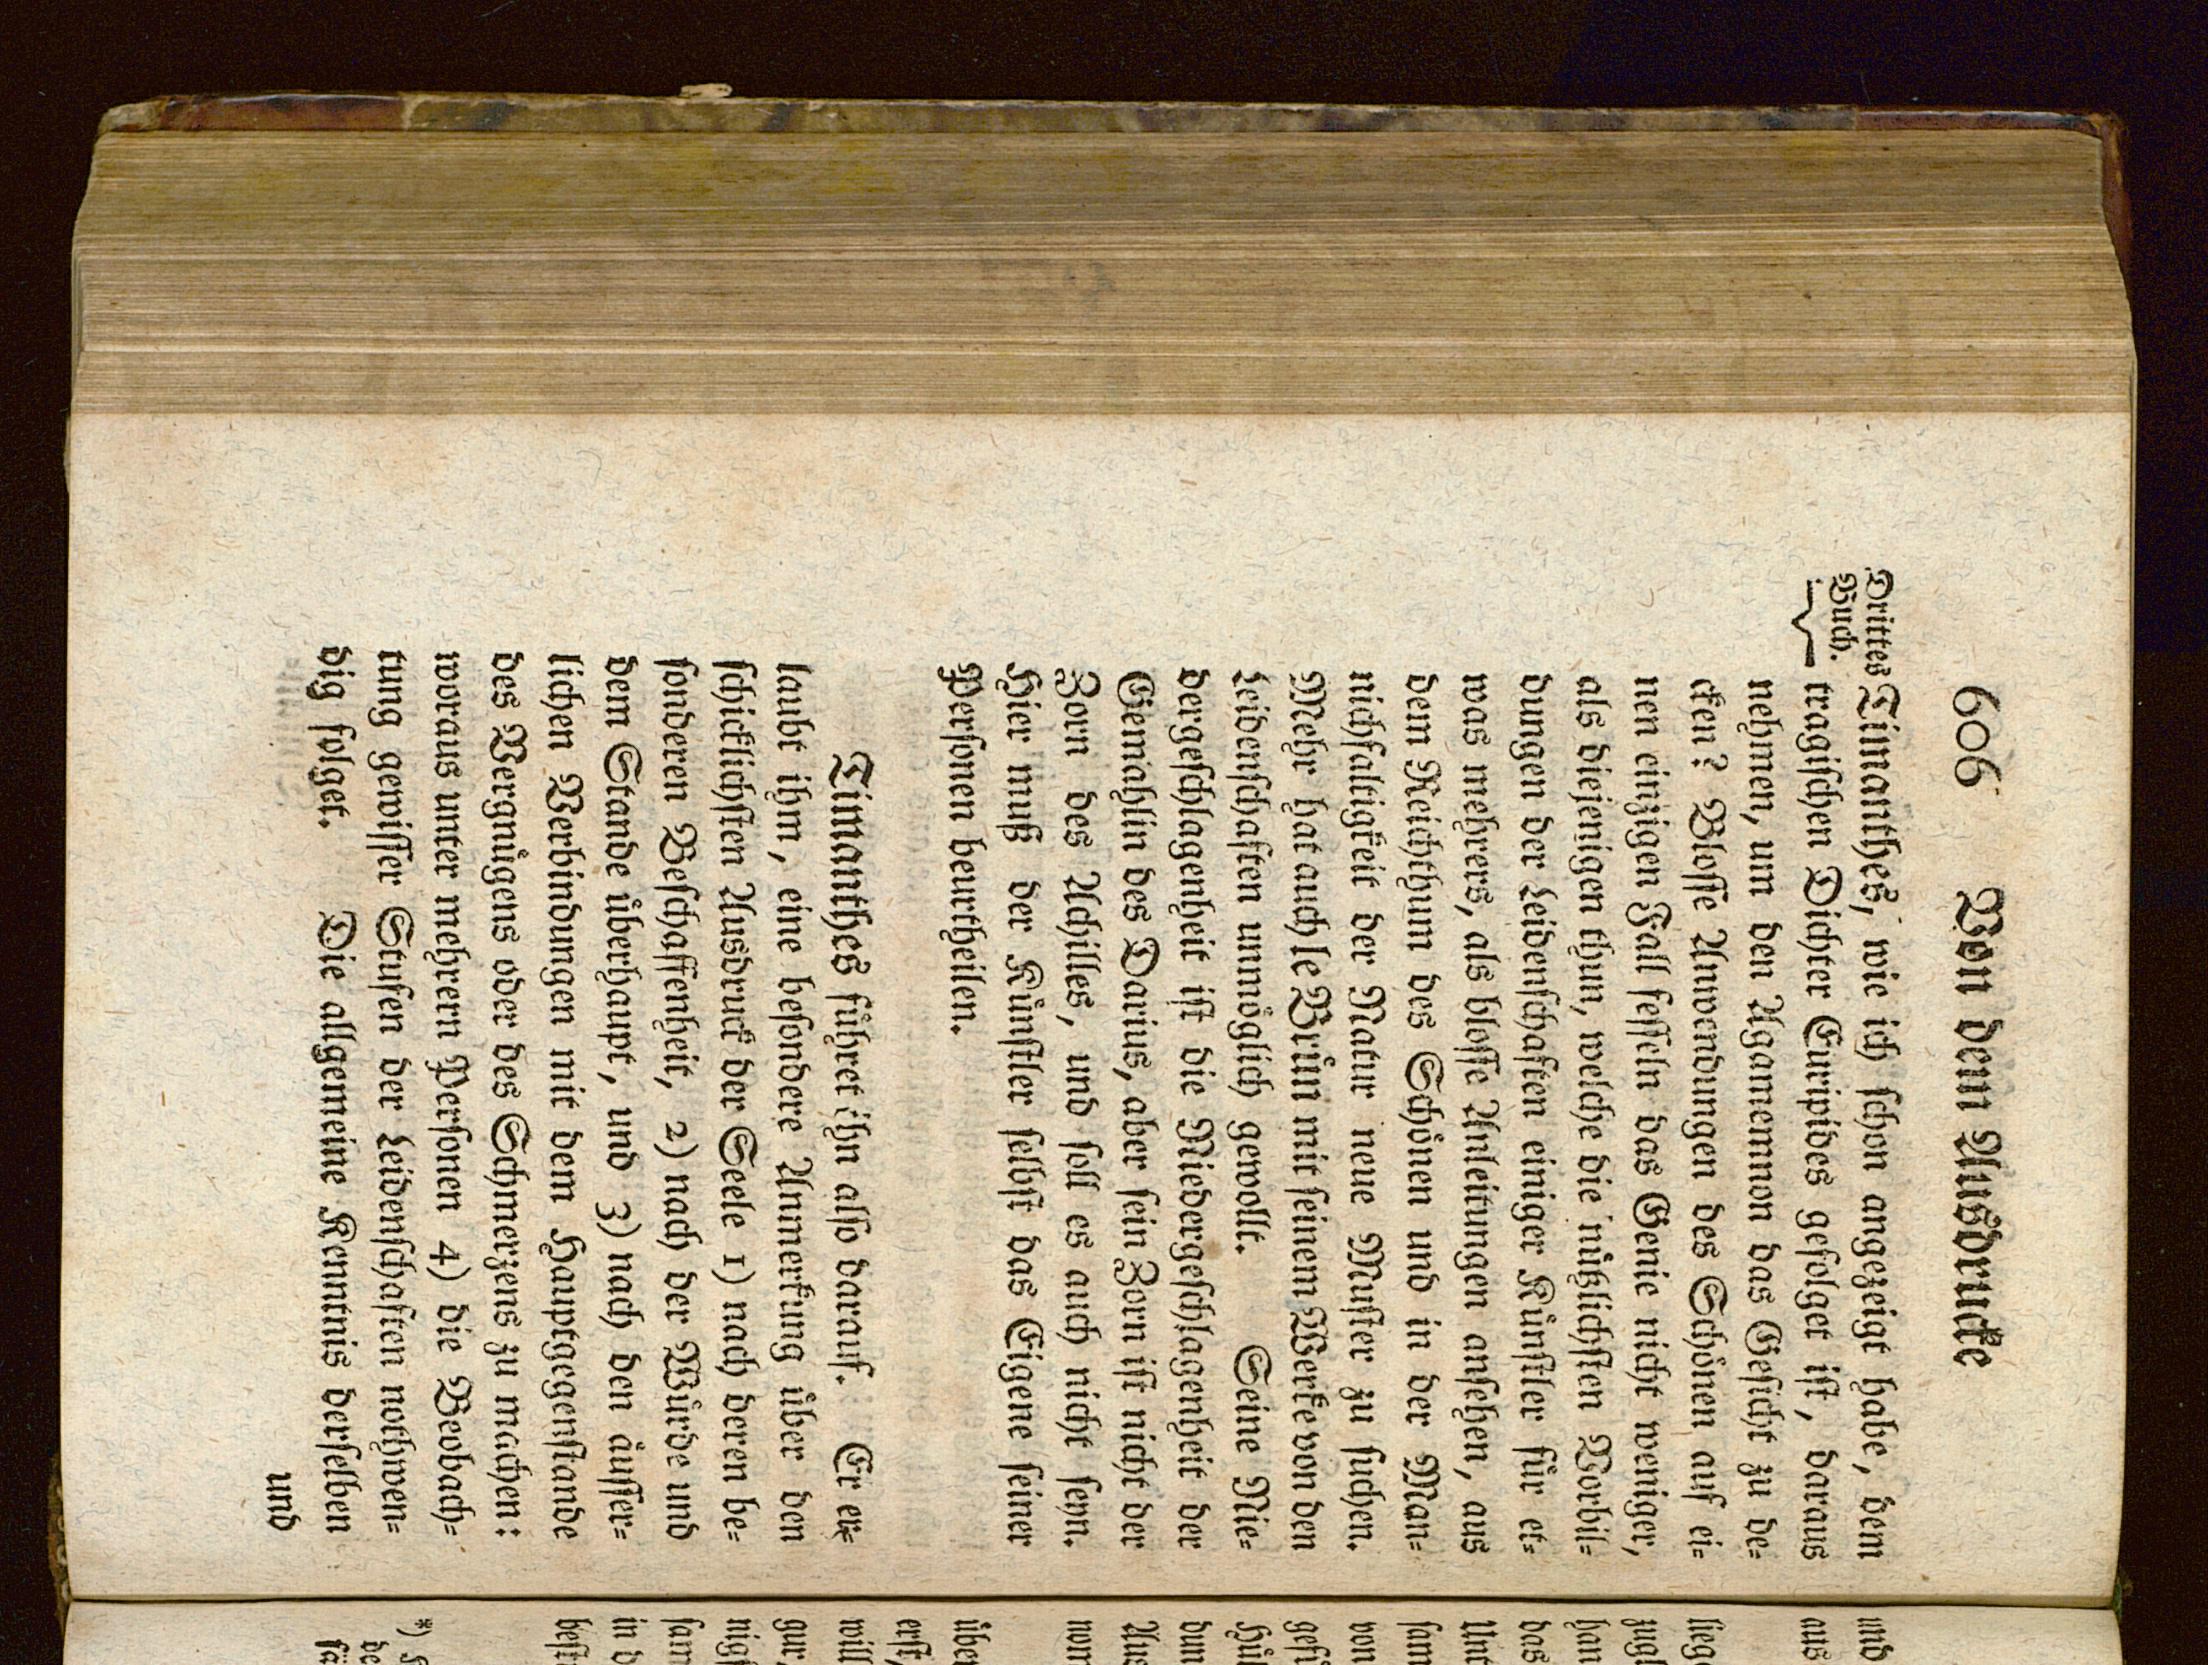 606 Von dem Ausdrucke
Drittes
Buch.
Timanthes, wie ich schon angezeigt habe, dem
tragischen Dichter Euripides gefolget ist, daraus
nehmen, um den Agamemnon das Gesicht zu de=
cken? Blosse Anwendungen des Schönen auf ei=
nen einzigen Fall fesseln das Genie nicht weniger,
als diejenigen thun, welche die nützlichsten Vorbil=
dungen der Leidenschaften einiger Künstler für et=
was mehrers, als blosse Anleitungen ansehen, aus
dem Reichthum des Schönen und in der Man=
nichfaltigkeit der Natur neue Muster zu suchen.
Mehr hat auch le Brün mit seinem Werke von den
Leidenschaften unmöglich gewollt. Seine Nie=
dergeschlagenheit ist die Niedergeschlagenheit der
Gemahlin des Darius, aber sein Zorn ist nicht der
Zorn des Achilles, und soll es auch nicht seyn.
Hier muß der Künstler selbst das Eigene seiner
Personen beurtheilen.
Timanthes führet ihn also darauf. Er er=
laubt ihm, eine besondere Anmerkung über den
schicklichsten Ausdruck der Seele 1) nach deren be=
sonderen Beschaffenheit, 2) nach der Würde und
dem Stande überhaupt, und 3) nach den äusser=
lichen Verbindungen mit dem Hauptgegenstande
des Vergnügens oder des Schmerzens zu machen:
woraus unter mehrern Personen 4) die Beobach=
tung gewisser Stufen der Leidenschaften nothwen=
dig folget. Die allgemeine Kenntnis derselben
und
und
aus